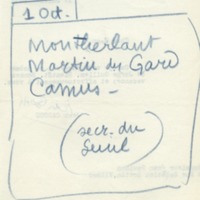 1 Oct.
Montherlant
Martin du Gard
Camus -
(secr. du
Seuil)